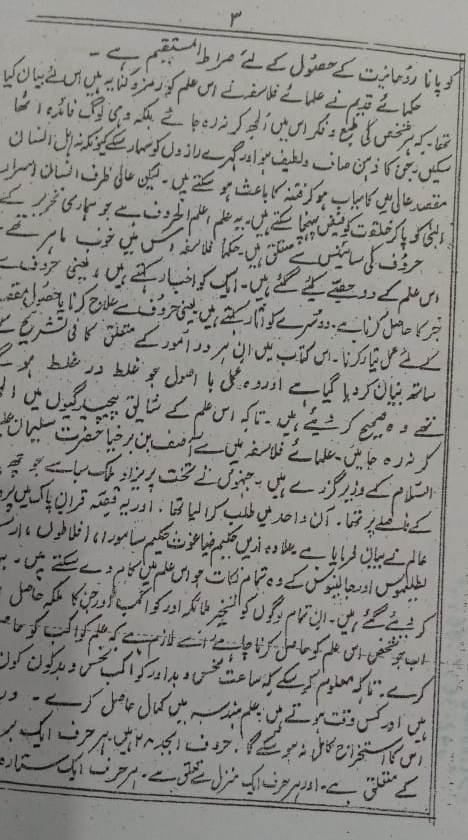 ۳
کو پانا روحانیت کے حصول کے لئے صراط المستقیم ہے ۔
حکمائے قدیم نے علمائے فلاسفہ نے اس علم کو رمز و کنایہ میں اس لئے بیان کیا
تھا ۔ کہ ہر شخص کی طبع و فکر اس میں الجھ کر نہ رہ جائے بلکہ وہی لوگ فائدہ اٹھا
سکیں جن کا ذہن صاف و لطیف ہو اور گہرے رازوں کو سہار سکے کیونکہ نا اہل انسان
مقصد عالی میں کامیاب ہو کر فتنہ کا باعث ہو سکتے ہیں ۔ لیکن عالی ظرف انسان اسرار
الٰہی کو پا کر خلقت کو فیض پہنچا سکتے ہیں ۔ یہ علم علم الحروف ہے جو ہماری تحریر کے
حروف کی سائنس سے متعلق ہیں ۔ حکما فلاسفہ اس میں خوب ماہر تھے ۔
اس علم کے دو حصے کئے گئے ہیں ۔ ایک کو اخبار کہتے ہیں ، یعنی حروف سے
خبر کا حاصل کرنا ہے ۔ دوسرے کو آثار کہتے ہیں یعنی حروف سے علاج کرنا یا حصول مقصد
کے لئے عمل تیار کرنا ۔ اس کتاب میں ان ہر دو امور کے متعلق کافی تشریح کے
ساتھ بیان کر دیا گیا ہے اور وہ عمل با اصول جو غلط در غلط ہو گئے
تھے وہ صحیح کر دیئے ہیں ۔ تاکہ اس علم کے شائق پیچیدگیوں میں الجھ
کر نہ رہ جائیں ۔ علمائے فلاسفہ میں سے آصف بن برخیا حضرت سلیمان علیہ
السلام کے وزیر گزرے ہیں ۔ جنہوں نے تخت پریزاد ملک سبا سے جو
کے فاصلے پر تھا ۔ آن واحد میں طلب کر لیا تھا ۔ اور یہ قصہ قرآن پاک میں پر
عالم نے بیان فرمایا ہے علاوہ ازیں حکیم فیثاغوث حکیم سامورا ، افلاطون ، ارسطو
بطلیموس اور جالینوس کے وہ تمام نکات جو اس علم میں کام دے سکتے ہیں ۔
کر دیئے گئے ہیں ۔ ان تمام لوگوں کو تسخیر ملائکہ اور کواکب اور جن کا ملکہ حاصل
اب جو شخص اس علم کو حاصل کرنا چاہے اسے لازم ہے کہ علم کواکب کو حاصل
کرے ۔ تاکہ معلوم کر سکے کہ ساعت نحس و بد اور کواکب نحس و بد کون کون
ہیں اور کس وقت ہوتے ہیں ۔ علم ہندسہ میں کمال حاصل کرے ۔
اس کا استخراج کامل نہ ہو سکے گا ۔ حروف ابجد ۲۸ ہیں ۔ ہر حرف ایک
کے متعلق ہے ۔ اور ہر حرف ایک منزل سے تعلق ہے ۔ ہر حرف ایک ستارہ